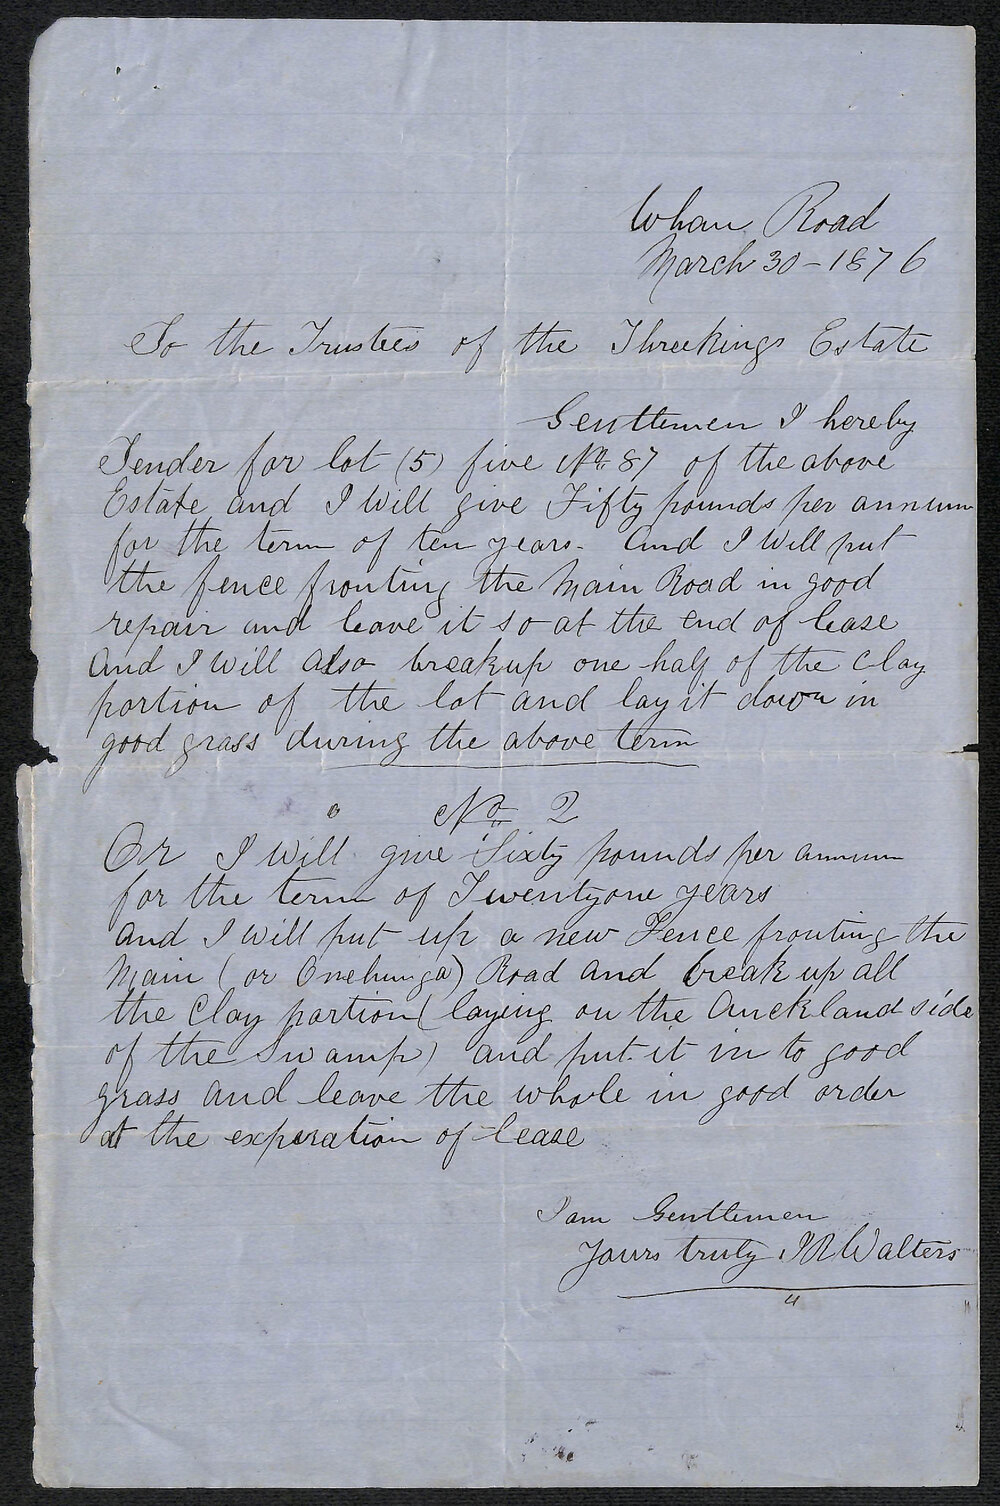 Whau Road
March 30 - 1876
To the Trustees of the Threekings Estate
Gentlemen I hereby
Tender for lot (5) five No 87 of the above
Estate and I Will give Fifty pounds per annum
for the term of ten years - and I Will put
the fence fronting the Main Road in good
repair and leave it so at the end of lease
And I Will also break up one half of the clay
portion of the lot and lay it down in
good grass during the above term
No 2
Or I Will give Sixty pounds per annum
for the term of Twentyone years
And I Will put up a new Fence fronting the
Main (or Onehunga) Road and break up all
the Clay portion (laying on the Auckland side
of the Swamp) and put it in to good
grass and leave the whole in good order
at the experation of lease
I am Gentlemen
Yours truly J R Walters